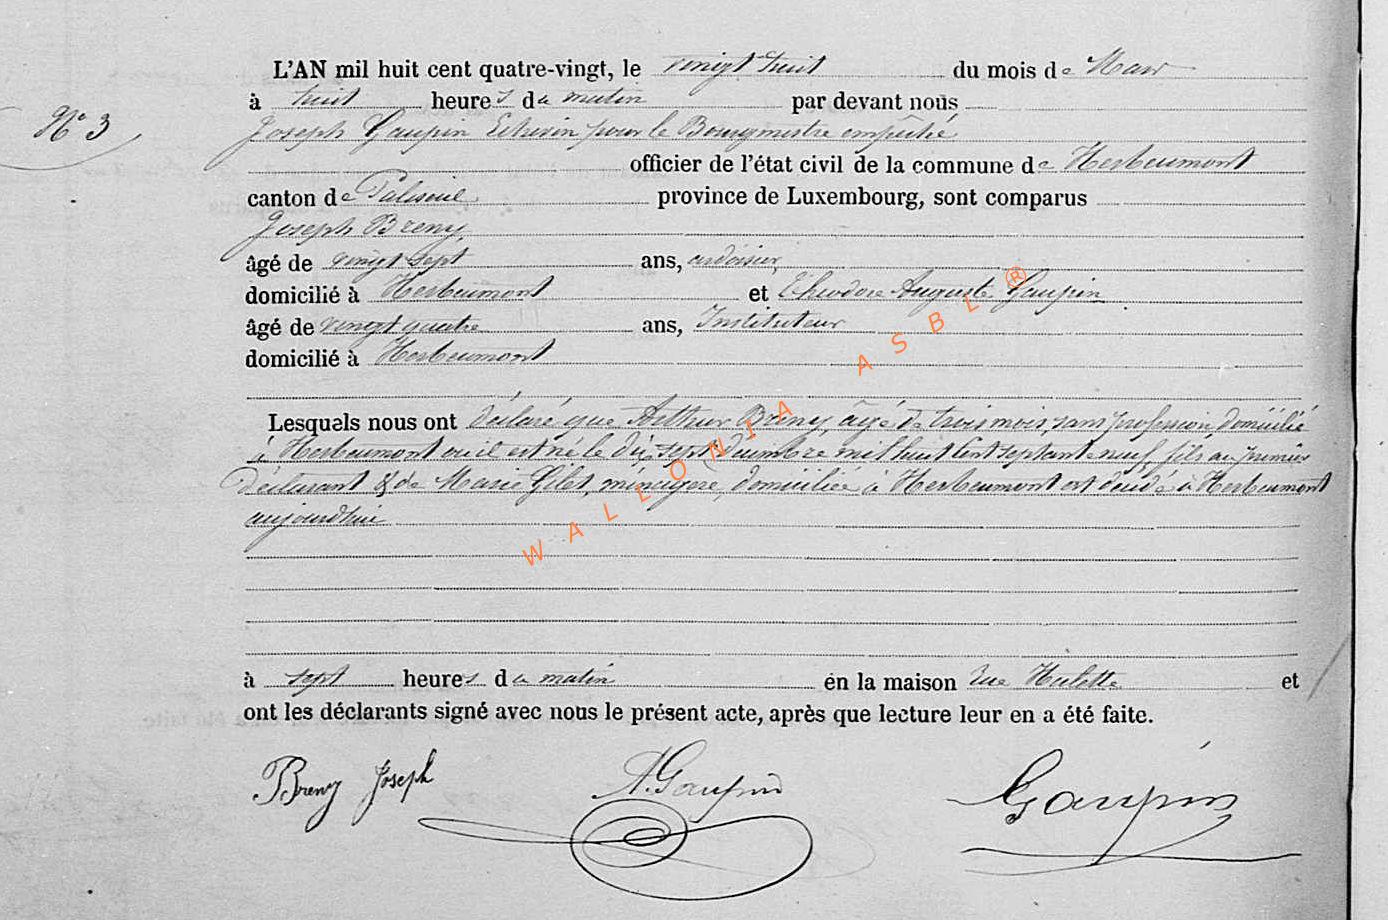 L'AN mil huit cent quatre-vingt, le vingt huit du mois de Mars
N° 3
à huit heures du matin par devant nous
Joseph Gaupin Echevin pour le Bourgmestre empêché
officier de l'état civil de la commune de Herbeumont
canton de Paliseul province de Luxembourg, sont comparus
Joseph Breny,
âgé de vingt sept ans, ardoisier,
domicilié à Herbeumont et Théodore Auguste Gaupin
âgé de vingt quatre ans, Instituteur
domicilié à Herbeumont
Lesquels nous ont déclaré que Arthur Breny, âgé de trois mois, sans profession, domicilié
à Herbeumont où il est né le dix sept décembre mil huit cent septante neuf, fils au premier
Déclarant & de Marie Gilet, ménagère, domiciliée à Herbeumont est décédé à Herbeumont
aujourd'hui
à sept heures du matin en la maison rue Hulette et
ont les déclarants signé avec nous le présent acte, après que lecture leur en a été faite.
Breny Joseph A. Gaupin Gaupin
WALLONIA ASBL ®